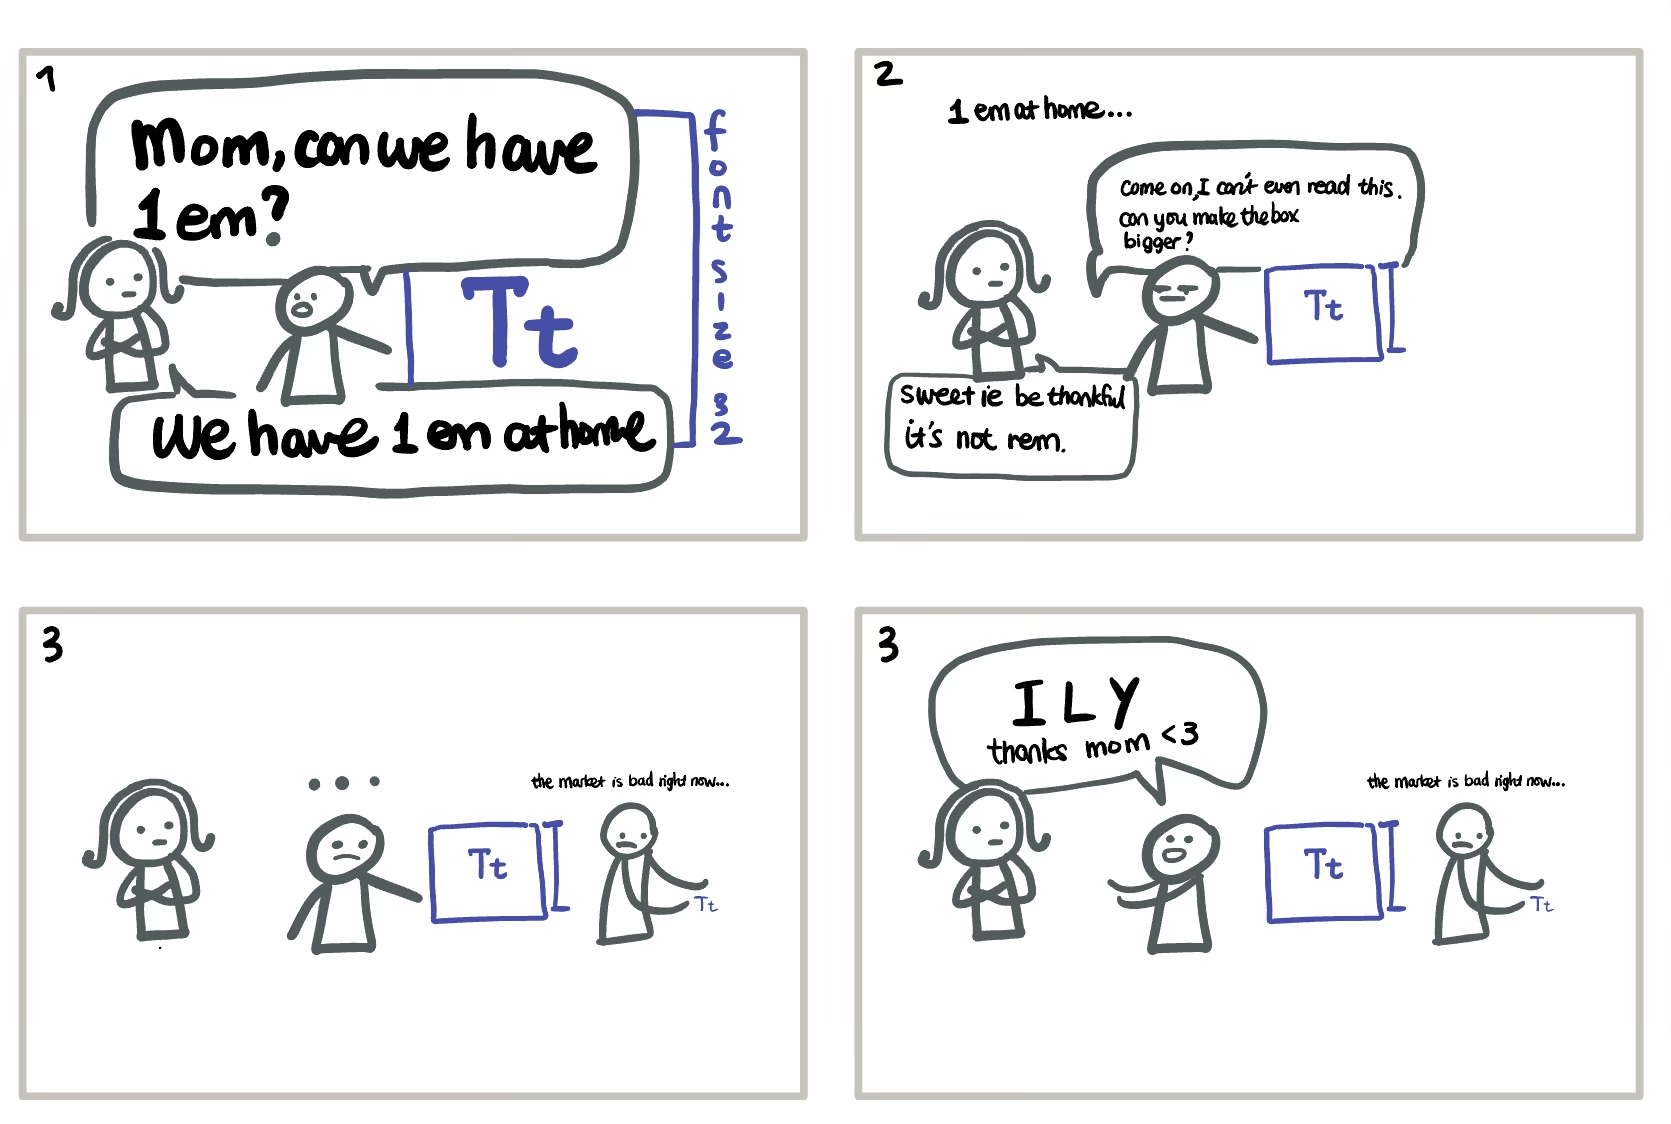 1
Mom, can we have
1 em?
Tt
font size 32
We have 1 em at home
2
1 em at home...
Come on, I can't even read this.
can you make the box
bigger?
Tt
sweetie be thankful
it's not rem.
3
...
the market is bad right now...
Tt
Tt
3
I L Y
thanks mom <3
the market is bad right now...
Tt
Tt